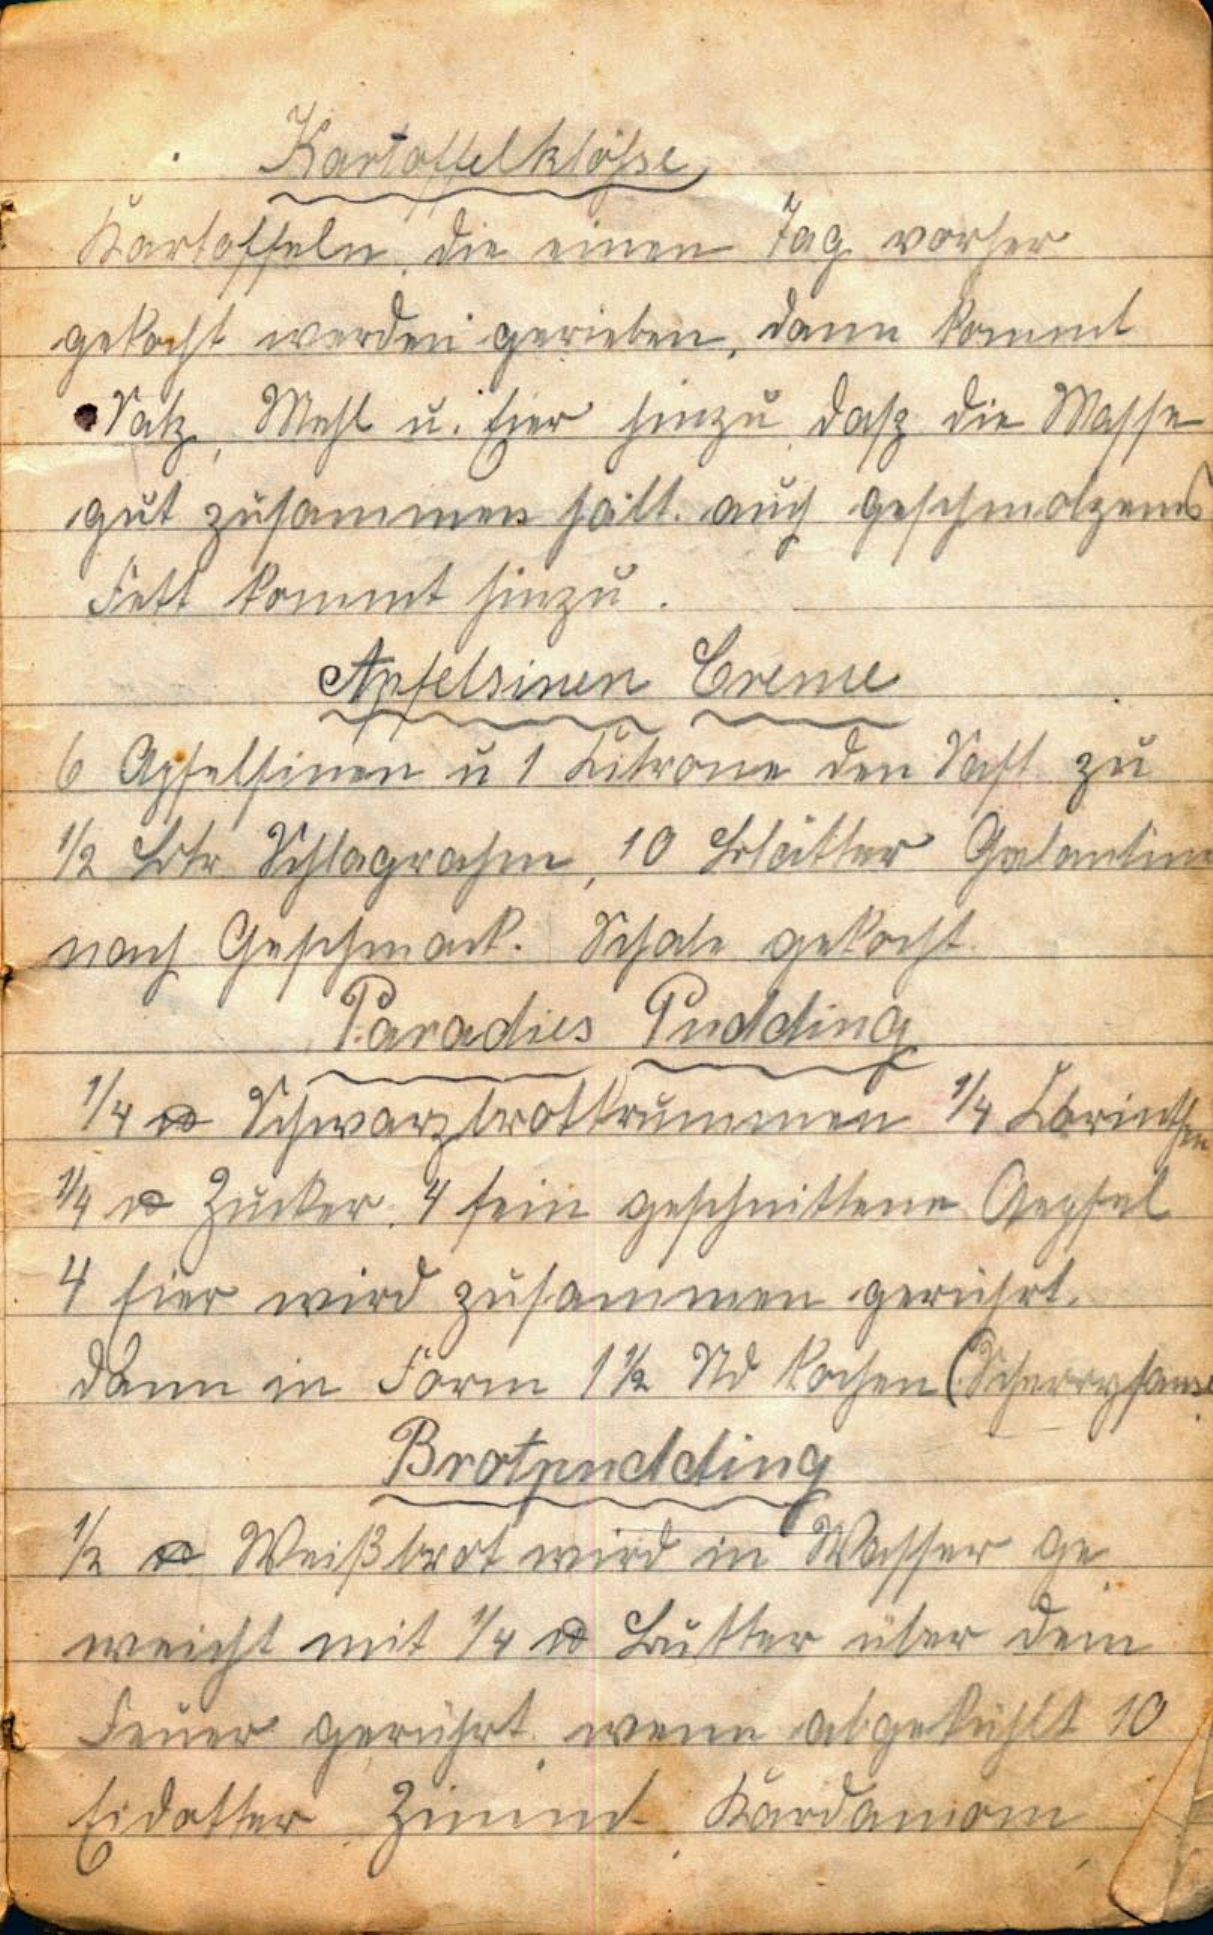 Kartoffelklösse
Kartoffeln, die einen Tag vorher
gekocht werden gerieben, dann kommt
Salz, Mehl u. Eier hinzu, dasz die Masse
gut zusammen hält. auch geschmolzenes
Fett kommt hinzu.
Apfelsinen Creme
6 Apfelsinen u 1 Zitrone den Saft zu
1/2 Ltr Schlagrahm, 10 Blätter Galantine
nach Geschmack. Schale gekocht.
Paradies Pudding
1/4 ℔ Schwarzbrotkrummen 1/4 Corinthen
1/4 ℔ Zucker. 4 fein geschnittene Aepfel
4 Eier wird zusammen gerührt.
dann in Form 1 1/2 Std kochen (Scherrysause
Brotpudding
1/2 ℔ Weißbrot wird in Wasser ge
weicht mit 1/4 ℔ Butter über dem
Feuer gerührt, wenn abgekühlt 10
Eidotter, Zimmt, Kardamom